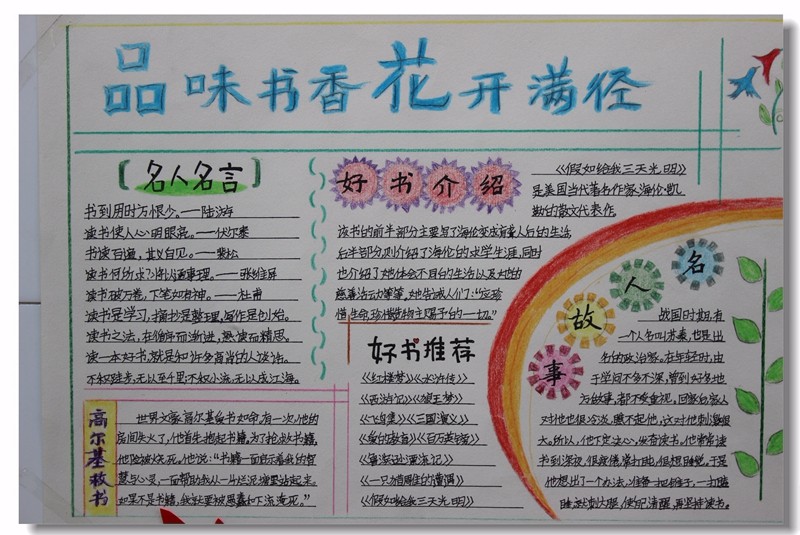 品味书香花开满径
【名人名言】
书到用时方恨少。——陆游
读书使人心明眼亮。——伏尔泰
书读百遍,其义自见。——裴松
读书何所求?将以通事理。——张维屏
读书破万卷,下笔如有神。——杜甫
读书是学习,摘抄是整理,写作是创造。
读书之法,在循序而渐进,熟读而精思。
读一本好书,就是和许多高尚的人谈话。
不积跬步,无以至千里;不积小流,无以成江海。
高尔基救书
世界文豪高尔基爱书如命,有一次,他的
房间失火了,他首先抱起书籍,为了抢救书籍,
他险被烧死。他说:“书籍一面启示着我的智
慧与心灵,一面帮助我从一片烂泥塘里站起来,
如果不是书籍,我就要被愚蠢和下流淹死。”
好书介绍
《假如给我三天光明》
是美国当代著名作家海伦·凯
勒的散文代表作,
该书的前半部分主要写了海伦变成盲聋人后的生活,
后半部分则介绍了海伦的求学生涯,同时
也介绍了她体会不同的生活以及她的
慈善活动等等,她告诫人们:“应珍
惜生命,珍惜造物主赐予的一切。”
好书推荐
《红楼梦》《水浒传》
《西游记》《狼王梦》
《飞鸟集》《三国演义》
《爱的教育》《百万英镑》
《鲁滨逊漂流记》
《一只猎雕的遭遇》
《假如给我三天光明》
名人故事
战国时期,有
一个人名叫苏秦,也是出
名的政治家。在年轻时,由
于学问不多不深,曾到好多地
方做事,都不受重视。回家后家人
对他也很冷淡,瞧不起他,这对他刺激很
大。所以,他下定决心,发奋读书。他常常读
书到深夜,很疲倦,常打盹,很想睡觉。于是
他想出了一个办法,准备一把锥子,一打瞌
睡,就刺大腿,使自己清醒,再坚持读书。